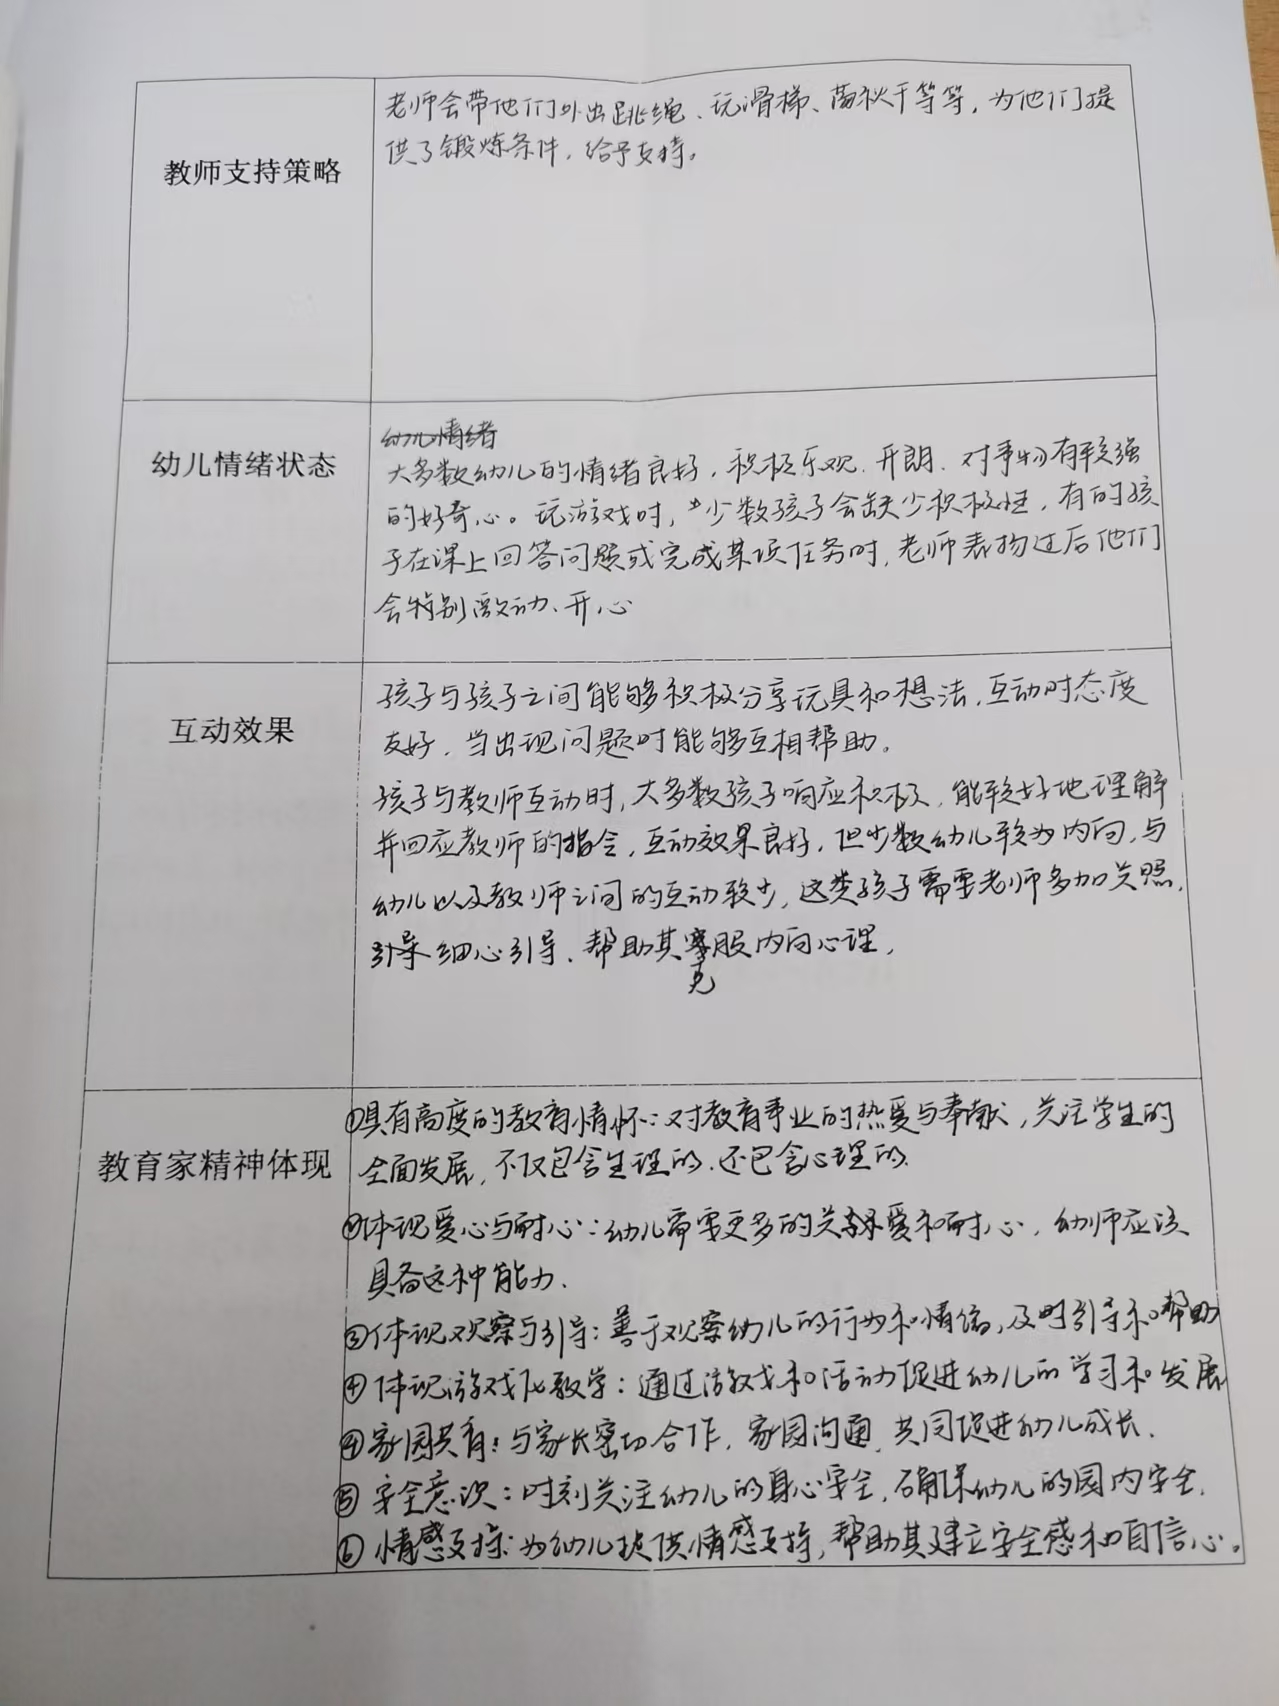 教师支持策略
老师会带他们外出跳绳、玩滑梯、荡秋千等等，为他们提
供了锻炼条件，给予支持。
幼儿情绪状态
幼儿情绪
大多数幼儿的情绪良好，积极乐观、开朗、对事物有较强
的好奇心。玩游戏时，少数孩子会缺少积极性，有的孩
子在课上回答问题或完成某项任务时，老师表扬过后他们
会特别激动、开心
互动效果
孩子与孩子之间能够积极分享玩具和想法，互动时态度
友好，当出现问题时能够互相帮助。
孩子与教师互动时，大多数孩子响应积极，能较好地理解
并回应教师的指令，互动效果良好，但少数幼儿较为内向，与
幼儿以及教师之间的互动较少，这类孩子需要老师多加关照，
引导细心引导、帮助其克服内向心理，
教育家精神体现
①具有高度的教育情怀：对教育事业的热爱与奉献，关注学生的
全面发展，不仅包含生理的、还包含心理的
②体现爱心与耐心：幼儿需要更多的关爱和耐心，幼师应该
具备这种能力．
③体现观察与引导：善于观察幼儿的行为和情绪，及时引导和帮助
④体现游戏化教学：通过游戏和活动促进幼儿的学习和发展
④家园共育：与家长密切合作，家园沟通，共同促进幼儿成长．
⑤安全意识：时刻关注幼儿的身心安全，确保幼儿的园内安全．
⑥情感支持：为幼儿提供情感支持，帮助其建立安全感和自信心。